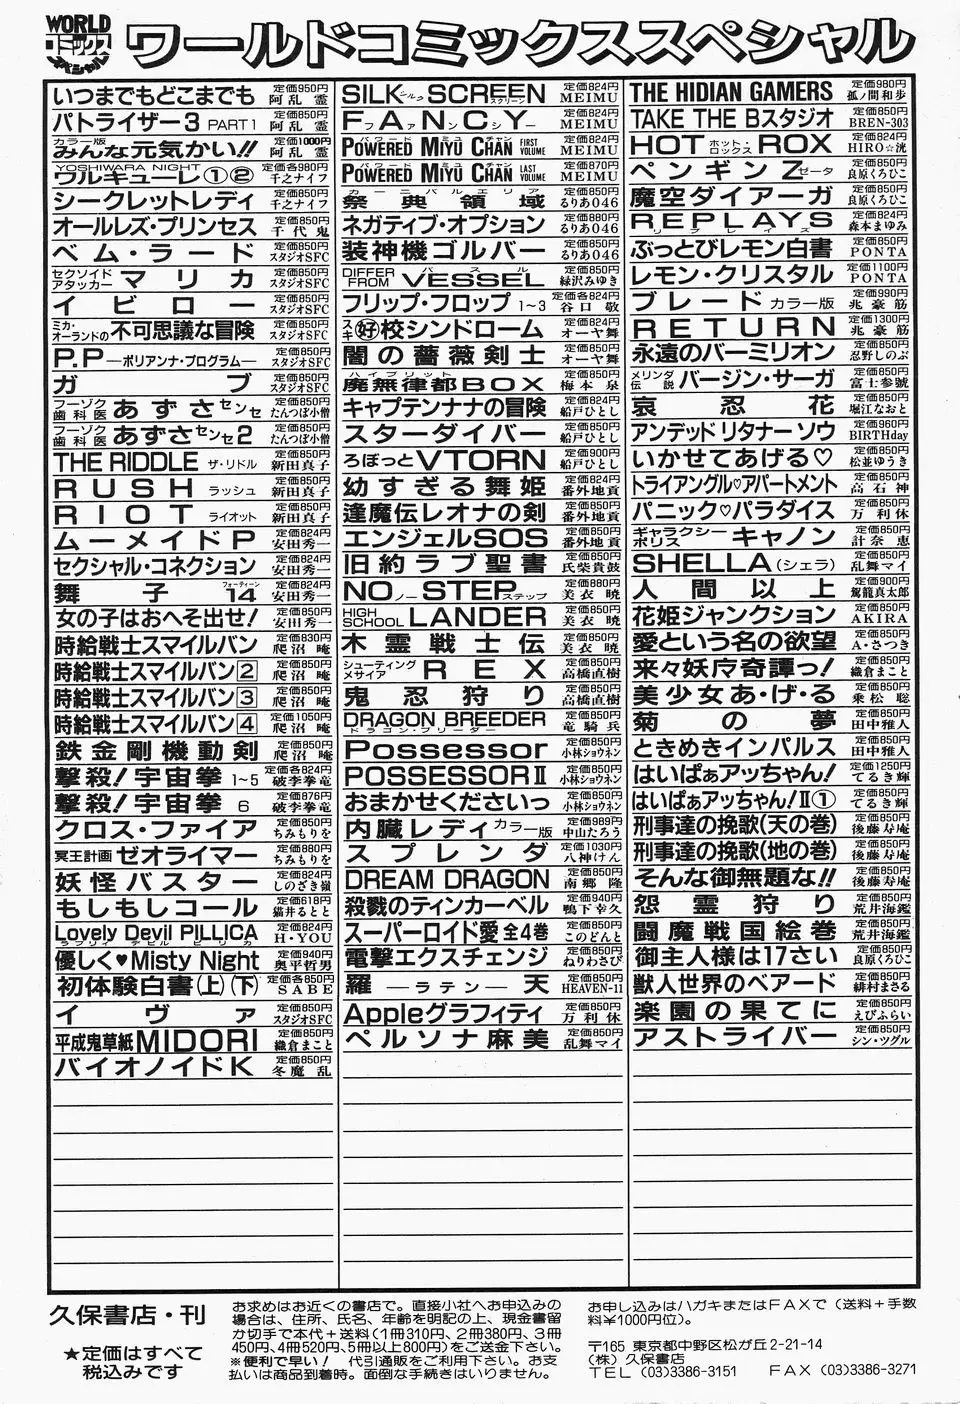 WORLD
コミックス
スペシャル
ワールドコミックススペシャル
いつまでもどこまでも 定価950円 阿乱 霊
パトライザー3 PART1 定価850円 阿乱 霊
カラー版 みんな元気かい!! 定価1000円 阿乱 霊
YOSHIWARA NIGHT ワルキューレ①② 定価各980円 千之ナイフ
シークレットレディ 定価850円 千之ナイフ
オールレズ・プリンセス 定価850円 千代鬼
ベム・ラード 定価850円 スタジオSFC
セクソイドアタッカー マリカ 定価850円 スタジオSFC
イビロー 定価850円 スタジオSFC
ミカ・オーランドの不可思議な冒険 定価850円 スタジオSFC
P.P—ポリアンナ・プログラム— 定価850円 スタジオSFC
ガブ 定価850円 スタジオSFC
フーゾク歯科医 あずさセンセ 定価850円 たんつぼ小僧
フーゾク歯科医 あずさセンセ2 定価850円 たんつぼ小僧
THE RIDDLE ザ・リドル 定価850円 新田真子
RUSH ラッシュ 定価850円 新田真子
RIOT ライオット 定価850円 新田真子
ムーメイドP 定価824円 安田秀一
セクシャル・コネクション 定価824円 安田秀一
舞子14 フォーティーン 定価824円 安田秀一
女の子はおへそ出せ! 定価850円 安田秀一
時給戦士スマイルバン 定価830円 爬沼 唵
時給戦士スマイルバン2 定価850円 爬沼 唵
時給戦士スマイルバン3 定価850円 爬沼 唵
時給戦士スマイルバン4 定価1050円 爬沼 唵
鉄金剛機動剣 定価850円 爬沼 唵
撃殺!宇宙拳 1~5 定価各824円 破李拳竜
撃殺!宇宙拳 6 定価876円 破李拳竜
クロス・ファイア 定価850円 ちみもりを
冥王計画ゼオライマー 定価880円 ちみもりを
妖怪バスター 定価850円 しのざき嶺
もしもしコール 定価618円 猫井るとと
Lovely Devil PILLICA ラブリィ デビル ピリカ 定価824円 H・YOU
優しく♥Misty Night 定価940円 奥平哲男
初体験白書(上)(下) 定価各850円 SABE
イヴァ 定価850円 スタジオSFC
平成鬼草紙MIDORI 定価850円 織倉まこと
バイオノイドK 定価850円 冬魔 乱
SILK シルク SCREEN スクリーン 定価824円 MEIMU
FANCY ファンシー 定価824円 MEIMU
POWERED MIYU CHAN パワード ミュウ チャン FIRST VOLUME 定価824円 MEIMU
POWERED MIYU CHAN パワード ミュウ チャン LAST VOLUME 定価870円 MEIMU
祭典領域 カーニバルエリア 定価850円 るりあ046
ネガティブ・オプション 定価880円 るりあ046
装神機ゴルバー 定価850円 るりあ046
DIFFER FROM VESSEL バスル 定価850円 緑沢みゆき
フリップ・フロップ 1~3 定価各824円 谷口 敬
スキ好校シンドローム 定価824円 オーヤ舞
闇の薔薇剣士 定価850円 オーヤ舞
廃無律都BOX ハイブリット 定価850円 梅本 泉
キャプテンナナの冒険 定価824円 船戸ひとし
スターダイバー 定価850円 船戸ひとし
ろぼっとVTORN 定価900円 船戸ひとし
幼すぎる舞姫 定価824円 番外地貢
逢魔伝レオナの剣 定価850円 番外地貢
エンジェルSOS 定価850円 番外地貢
旧約ラブ聖書 定価850円 氏柴貴鼓
NO ノー STEP ステップ 定価880円 美衣 暁
HIGH SCHOOL LANDER 定価850円 美衣 暁
木霊戦士伝 定価850円 美衣 暁
シューティングメサイア REX 定価824円 高橋直樹
鬼忍狩り 定価850円 高橋直樹
DRAGON BREEDER ドラゴン・ブリーダー 定価850円 竜騎兵
Possessor 定価850円 小林ショウネン
POSSESSORⅡ 定価850円 小林ショウネン
おまかせくださいっ 定価850円 小林ショウネン
内臓レディ カラー版 定価989円 中山たろう
スプレンダ 定価1030円 八神けん
DREAM DRAGON 定価850円 南郷 隆
殺戮のティンカーベル 定価940円 鴨下幸久
スーパーロイド愛 全4巻 定価各824円 このどんと
電撃エクスチェンジ 定価850円 ねりわさび
羅—ラテン—天 定価850円 HEAVEN-11
Appleグラフィティ 定価850円 万利休
ペルソナ麻美 定価850円 乱舞マイ
THE HIDIAN GAMERS 定価980円 狐ノ間和歩
TAKE THE Bスタジオ 定価850円 BREN-303
HOT ホット ROX ロックス 定価824円 HIRO☆洸
ペンギンZ ゼータ 定価850円 良原くろひこ
魔空ダイアーガ 定価850円 良原くろひこ
REPLAYS リプレイズ 定価824円 森本まゆみ
ぶっとびレモン白書 定価850円 PONTA
レモン・クリスタル 定価1100円 PONTA
ブレード カラー版 定価990円 兆豪筋
RETURN 定価1300円 兆豪筋
永遠のバーミリオン 定価850円 忍野しのぶ
メリンダ伝説 バージン・サーガ 定価850円 富士参號
哀忍花 定価850円 堀江なおと
アンデッド リタナー ソウ 定価960円 BIRTHday
いかせてあげる♡ 定価850円 松並ゆうき
トライアングル♡アパートメント 定価850円 高石神
パニック♡パラダイス 定価850円 万利休
ギャラクシーポリス キャノン 定価850円 計奈 恵
SHELLA(シェラ) 定価850円 乱舞マイ
人間以上 定価900円 駕籠真太郎
花姫ジャンクション 定価850円 AKIRA
愛という名の欲望 定価850円 A・さつき
来々妖序奇譚っ! 定価850円 織倉まこと
美少女あ・げ・る 定価850円 乗松 聡
菊の夢 定価850円 田中雅人
ときめきインパルス 定価850円 田中雅人
はいぱぁアッちゃん! 定価1250円 てるき輝
はいぱぁアッちゃん!Ⅱ① 定価850円 てるき輝
刑事達の挽歌(天の巻) 定価989円 後藤寿庵
刑事達の挽歌(地の巻) 定価850円 後藤寿庵
そんな御無題な!! 定価850円 後藤寿庵
怨霊狩り 定価850円 荒井海鑑
闘魔戦国絵巻 定価850円 荒井海鑑
御主人様は17さい 定価850円 良原くろひこ
獣人世界のベアード 定価850円 緋村まさる
楽園の果てに 定価850円 えびふらい
アストライバー 定価850円 シン・ツグル
久保書店・刊
★定価はすべて
税込みです
お求めはお近くの書店で。直接小社へお申込みの
場合は、住所、氏名、年齢を明記の上、現金書留
か切手で本代+送料(1冊310円、2冊380円、3冊
450円、4冊520円、5冊以上800円)をご送金下さい。
※便利で早い! 代引通販をご利用下さい。お支
払いは商品到着時。面倒な手続きはいりません。
お申し込みはハガキまたはFAXで(送料+手数
料¥1000円位)。
〒165 東京都中野区松が丘2-21-14
(株)久保書店
TEL (03)3386-3151 FAX (03)3386-3271